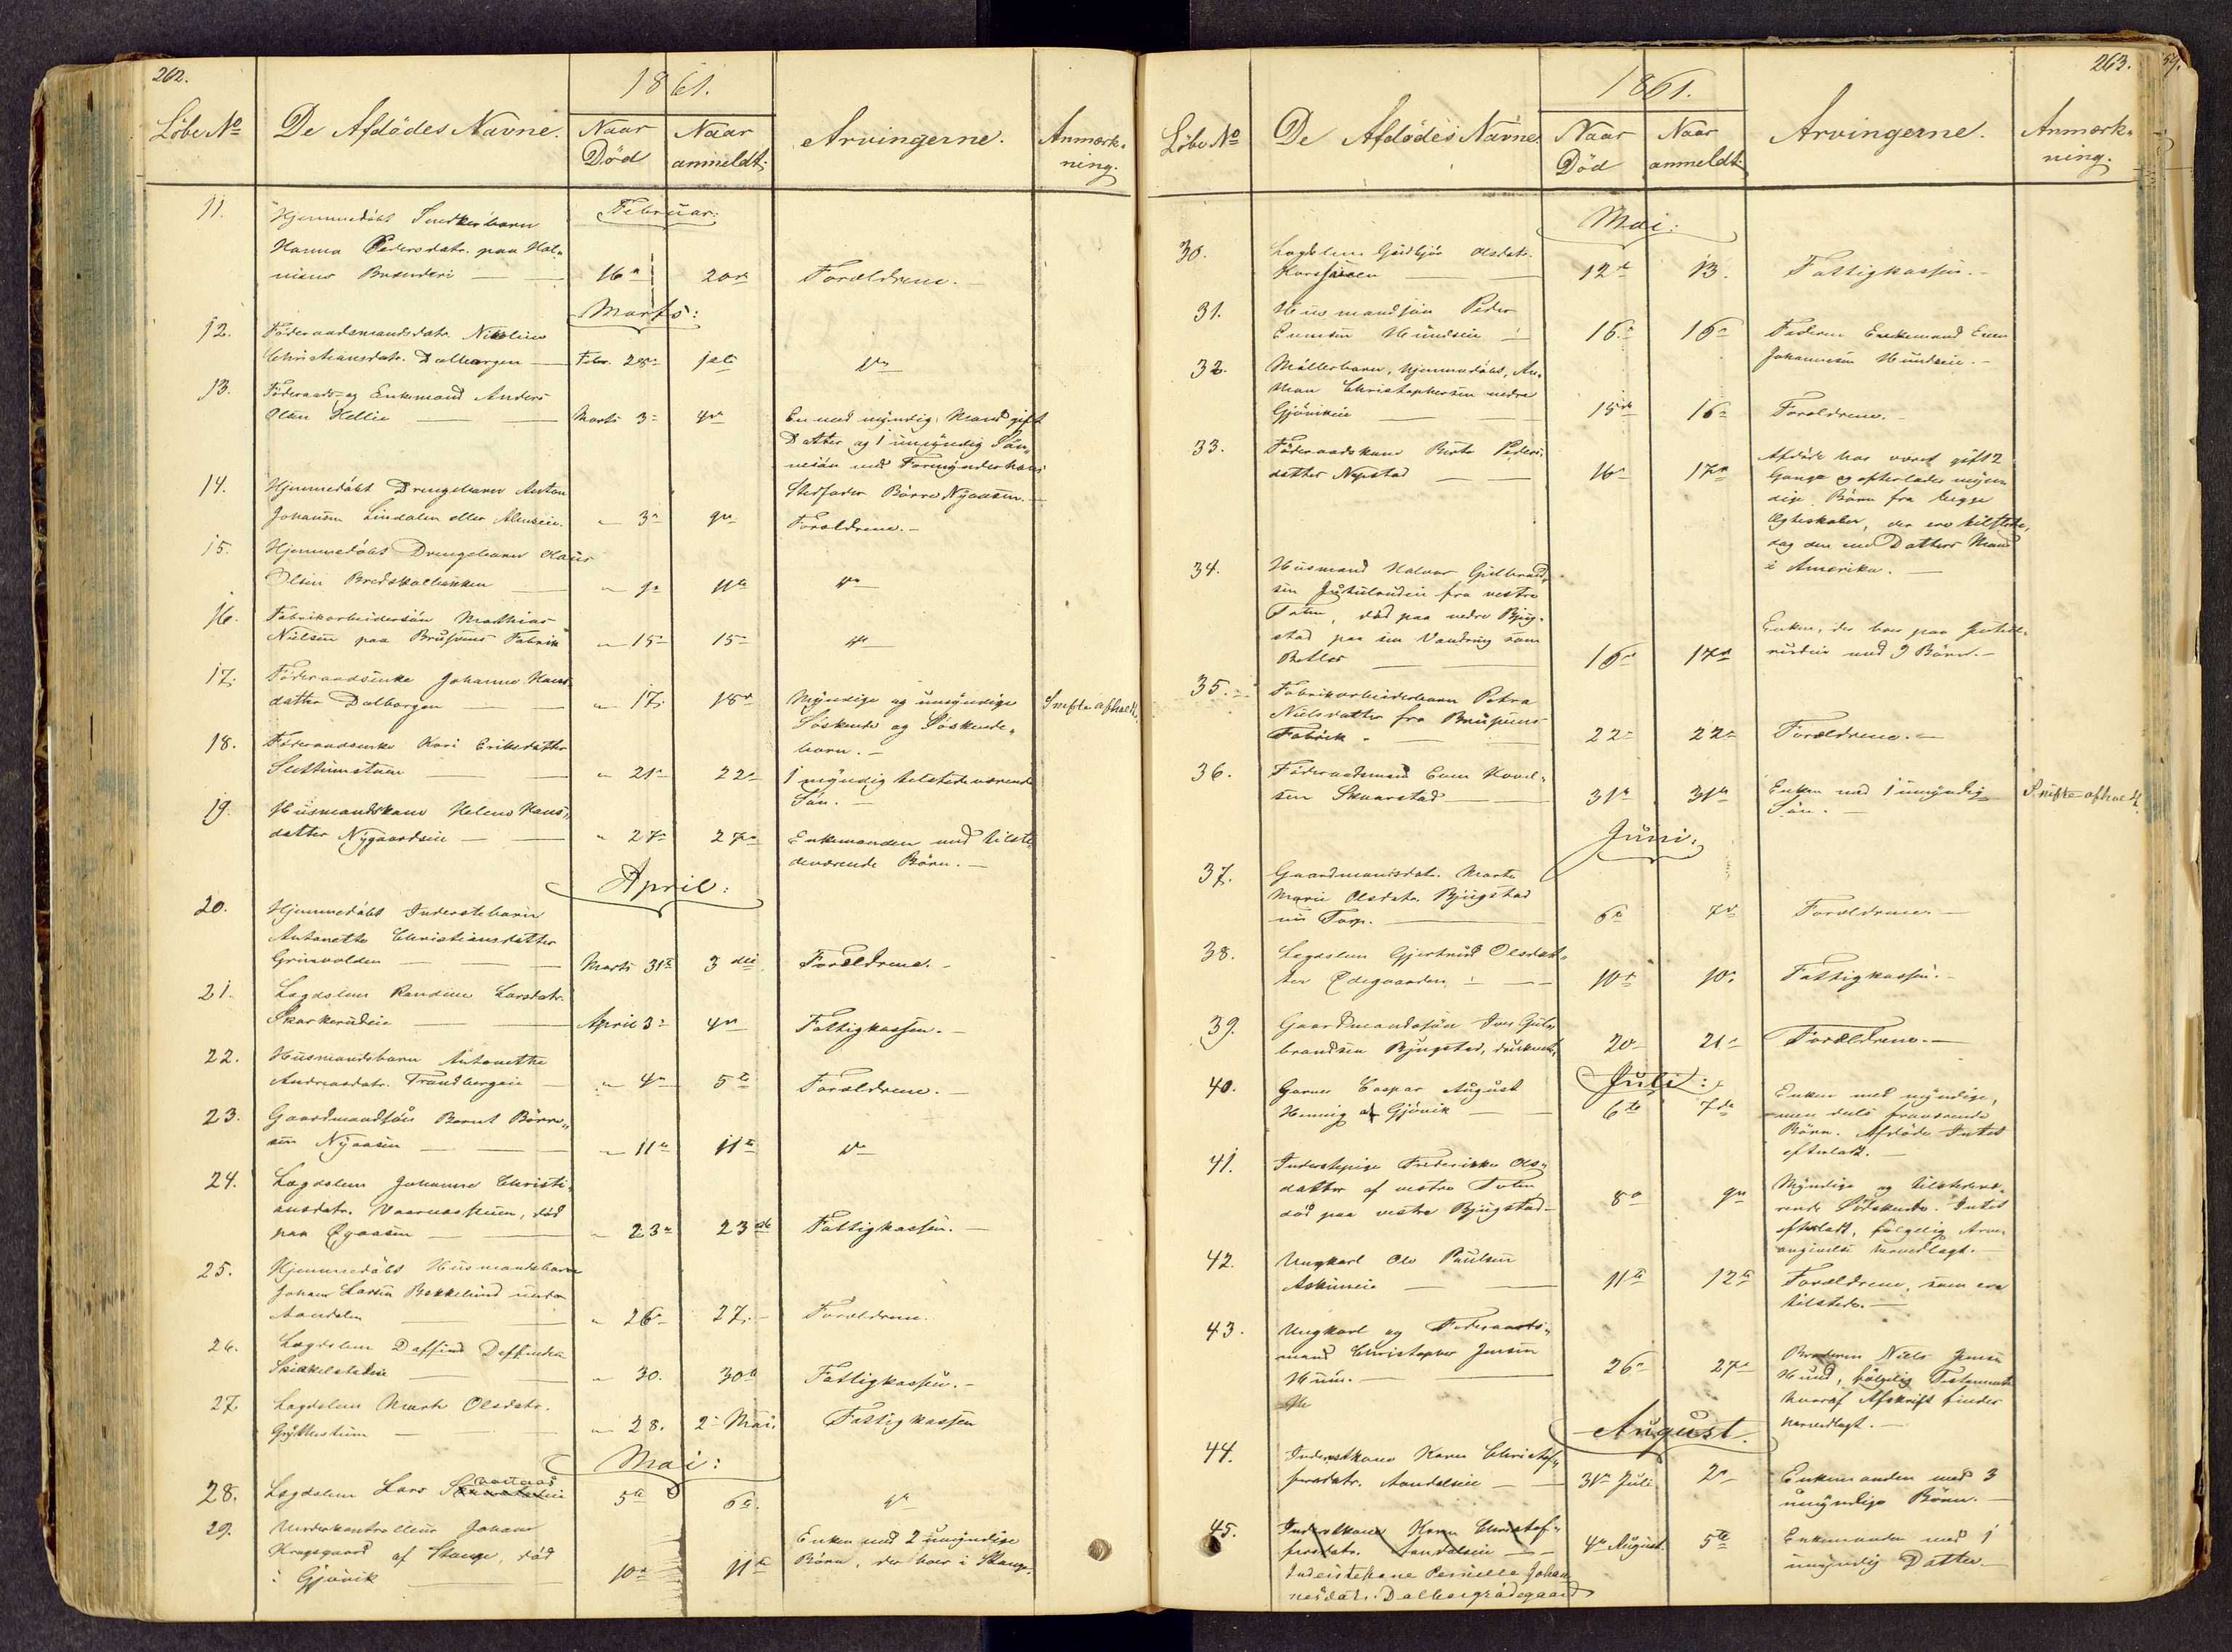 262.
1861.
Löbe No
De Afdödes Navne.
Naar Död
Naar anmeldt.
Arvingerne.
Anmærkning.
Februar:
11. Hjemmedöbt Smedkerbarn
Hanna Pedersdatr. paa Hol„
mens Brænderi 16de 20de Forældrene.
Marts:
12. Föderaadsmandsdatr. Nikoline
Christiansdatr. Dalborgen Febr. 28de 1ste do
13. Föderaads- og Enkemand Anders
Olsen Hellie Marts 3de 4de En med myndig Mand gift
Datter og 1 umyndig Sön„
nesön med Formynder hans
Stedfader Börre Nyaasen.
14. Hjemmedöbt Drengebarn Anton
Johansen Lindalen eller Alm „ 3de 9de Forældrene.
15. Hjemmedöbt Drengebarn Olaus
Olsen Bredskalbakken „ 9de 11te do
16. Fabrikarbeidersön Mathias
Nielsen paa Brusveens Fabrik „ 15de 15de do
17. Föderaadsenke Johanne Hans„
datter Dalborgen „ 17. 18de Myndige og umyndige Skifte afholdt.
Söskende og Söskende„
born.
18. Föderaadsenke Kari Eriksdatter
Slettumstuen „ 21de 22de 1 myndig tilstedeværende
Sön.
19. Husmandskone Helene Hans„
datter Nygaardseie „ 27de 27de Enkemanden med tilste„
deværende Börn.
April:
20. Hjemmedöbt Inderstebarn
Antonette Christiansdatter
Grinvolden Marts 31te 3die Forældrene.
21. Lægdslem Randine Larsdatr.
Skarkerudeie April 3de 4de Fattigkassen.
22. Husmandsbarn Antonette
Andreasdatr. Trandbergeie „ 4de 5te Forældrene.
23. Gaardmandssön Bernt Börre„
sen Nyaasen „ 11te 11te do
24. Lægdslem Johanne Christi„
ansdatr. , död
paa Ögaasen „ 23de 23de Fattigkassen.
25. Hjemmedöbt Husmandsbarn
Johan Larsen Bakkelund under
Aandalen „ 26de 27. Forældrene.
26. Lægdslem Daffind Daffindsen
Skikelstadeie „ 30. 30te Fattigkassen.
27. Lægdslem Marte Olsdatr.
„ 28. 2de Mai. Fattigkassen
Mai:
28. Lægdslem Lars 5te 6te do
29. Underkontrolleur Johan
Kragsgaard af Stange, död
i Gjövik 10de 11te Enken med 2 umyndige
Börn, der boer i Stange.
263.
1861.
Löbe No
De Afdödes Navne.
Naar Död
Naar anmeldt.
Arvingerne.
Anmærkning.
Mai:
30. Lægdslem Gudbjör Olsdatr.
12te 13. Fattigkassen.
31. Husmandssön Peder
Evensen Hundseie 15de 16de Faderen Enkemand Even
Johannesen Hundseie.
32. Möllerbarn, hjemmedöbt, An„
ton Christophersen nedre
Gjövikeie 15de 16de Forældrene.
33. Föderaadskone Berte Peders„
datter Nygstad 16de 17de Afdöde har været gift 2
Gange og efterlader myn„
dige Börn fra begge
Ægteskaber, der ere tilstede,
dog den ene Datters Mand
i Amerika.
34. Husmand Halvor Gulbrand„
sen Justulrudeie fra vestre
Toten, död paa nedre Bjug„
stad paa sin Vandring som
Betler 16de 17de Enken, der boer paa Justul„
rudeie med 9 Börn.
35. Fabrikarbeiderbarn Petra
Nielsdatter fra Brusveens
Fabrik. 22de 22de Forældrene.
36. Föderaadsmand Even Knud„
sen Skaarstad 31te 31te Enken med 1 umyndig Skifte afholdt.
Sön.
Juni:
37. Gaardmandsdatr. Marte
Marie Olsdatr. Bjugstad
nu Torp. 6te 7de Forældrene.
38. Lægdslem Gjertrud Olsdat„
ter Ödegaarden 10de 10de Fattigkassen.
39. Gaardmandssön Iver Gul„
brandsen Bjugstad, druknet, 20de 21de Forældrene.
Juli:
40. Garver Caspar August
Hennig af Gjövik 6te 7de Enken med myndige,
men dels fraværende
Börn. Afdöde Intet
efterladt.
41. Inderstepige Frederikke Ols„
datter af vestre Toten
död paa vestre Bjugstad 8de 9de Myndige og tilstedevæ„
rende Södskende. Intet
efterladt, fölgelig Arve„
angivelse hernedlagt.
42. Ungkarl Ole Paulsen
Askimeie 11te 12te Forældrene, som ere
tilstede.
43. Ungkarl og Föderaads„
mand Christopher Jensen
Hunn. 26de 27de Broderen Niels Jensen
Hund, fölgelig Testament
hvoraf Afskrift findes
hernedlagt.
August.
44. Inderstkone Karen Christof„
fersdatr. Aandalseie 31te Juli 2de Enkemanden med 3
umyndige Börn.
45. Inderstkone Karen Christof„
fersdatr. Aandalseie 4de August. 5te Enkemanden med 1
umyndig Datter
Inderstekone Pernille Johan
nesdatr. Dalborgrödegaard